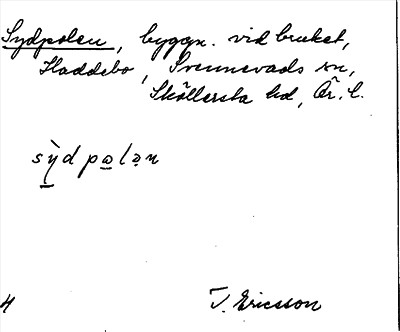 Sydpolen, byggn. vid bruket,
Haddebo, Svennevads sn,
Sköllersta hd, Ör. l.
sy̆̀d pωlən
4
T. Ericsson